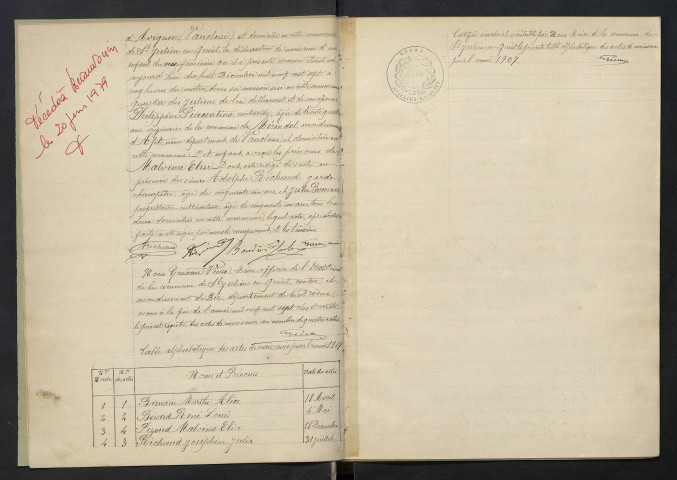 d'Avignon (Vaucluse) et domicilié en cette commune
de St Julien en Quint, la déclaration de naissance d'un
enfant du sexe féminin
aujourd'hui dix huit Décembre mil neuf cent sept à
cinq heures du matin, dans sa maison sise en cette commune
Julien de lui déclarant et de
Philippine âgée de trente quatre
ans originaire de la commune de Mérindol, arrondissement
d'Apt, département de Vaucluse et domiciliée en
cette commune. Cet enfant a reçu les prénoms de
Malvina Elise. Dont acte rédigé de suite en
présence des sieurs Adolphe Richaud garde
champêtre, âgé de cinquante six ans et Jules
propriétaire cultivateur, âgé de cinquante ans tous les
deux domiciliés en cette commune, lequel acte, après lecture
faite a été signé par nous, le comparant, et les témoins
Décédée
le 20 juin 1979
Nous Gustave Maire officier de l'Etat civil
de la commune de St Julien en Quint, canton et
arrondissement de Die, département de la Drôme,
avons à la fin de l'année mil neuf cent sept clos et arrêté
le présent registre des actes de naissance au nombre de quatre actes
Table alphabétique des actes de naissance pour l'année 1907
Nos d'ordre Nos des actes Noms et Prénoms Date des actes
1 1 Marthe Alice 18 Avril
2 2 René Louis 4 Mai
3 4 Malvina Elise 18 Décembre
4 3 Richaud Joséphine Julia 31 juillet
Certifiée sincère et véritable par Nous Maire de la commune de
St Julien en Quint la présente table alphabétique des actes de naissance
pour l'année 1907